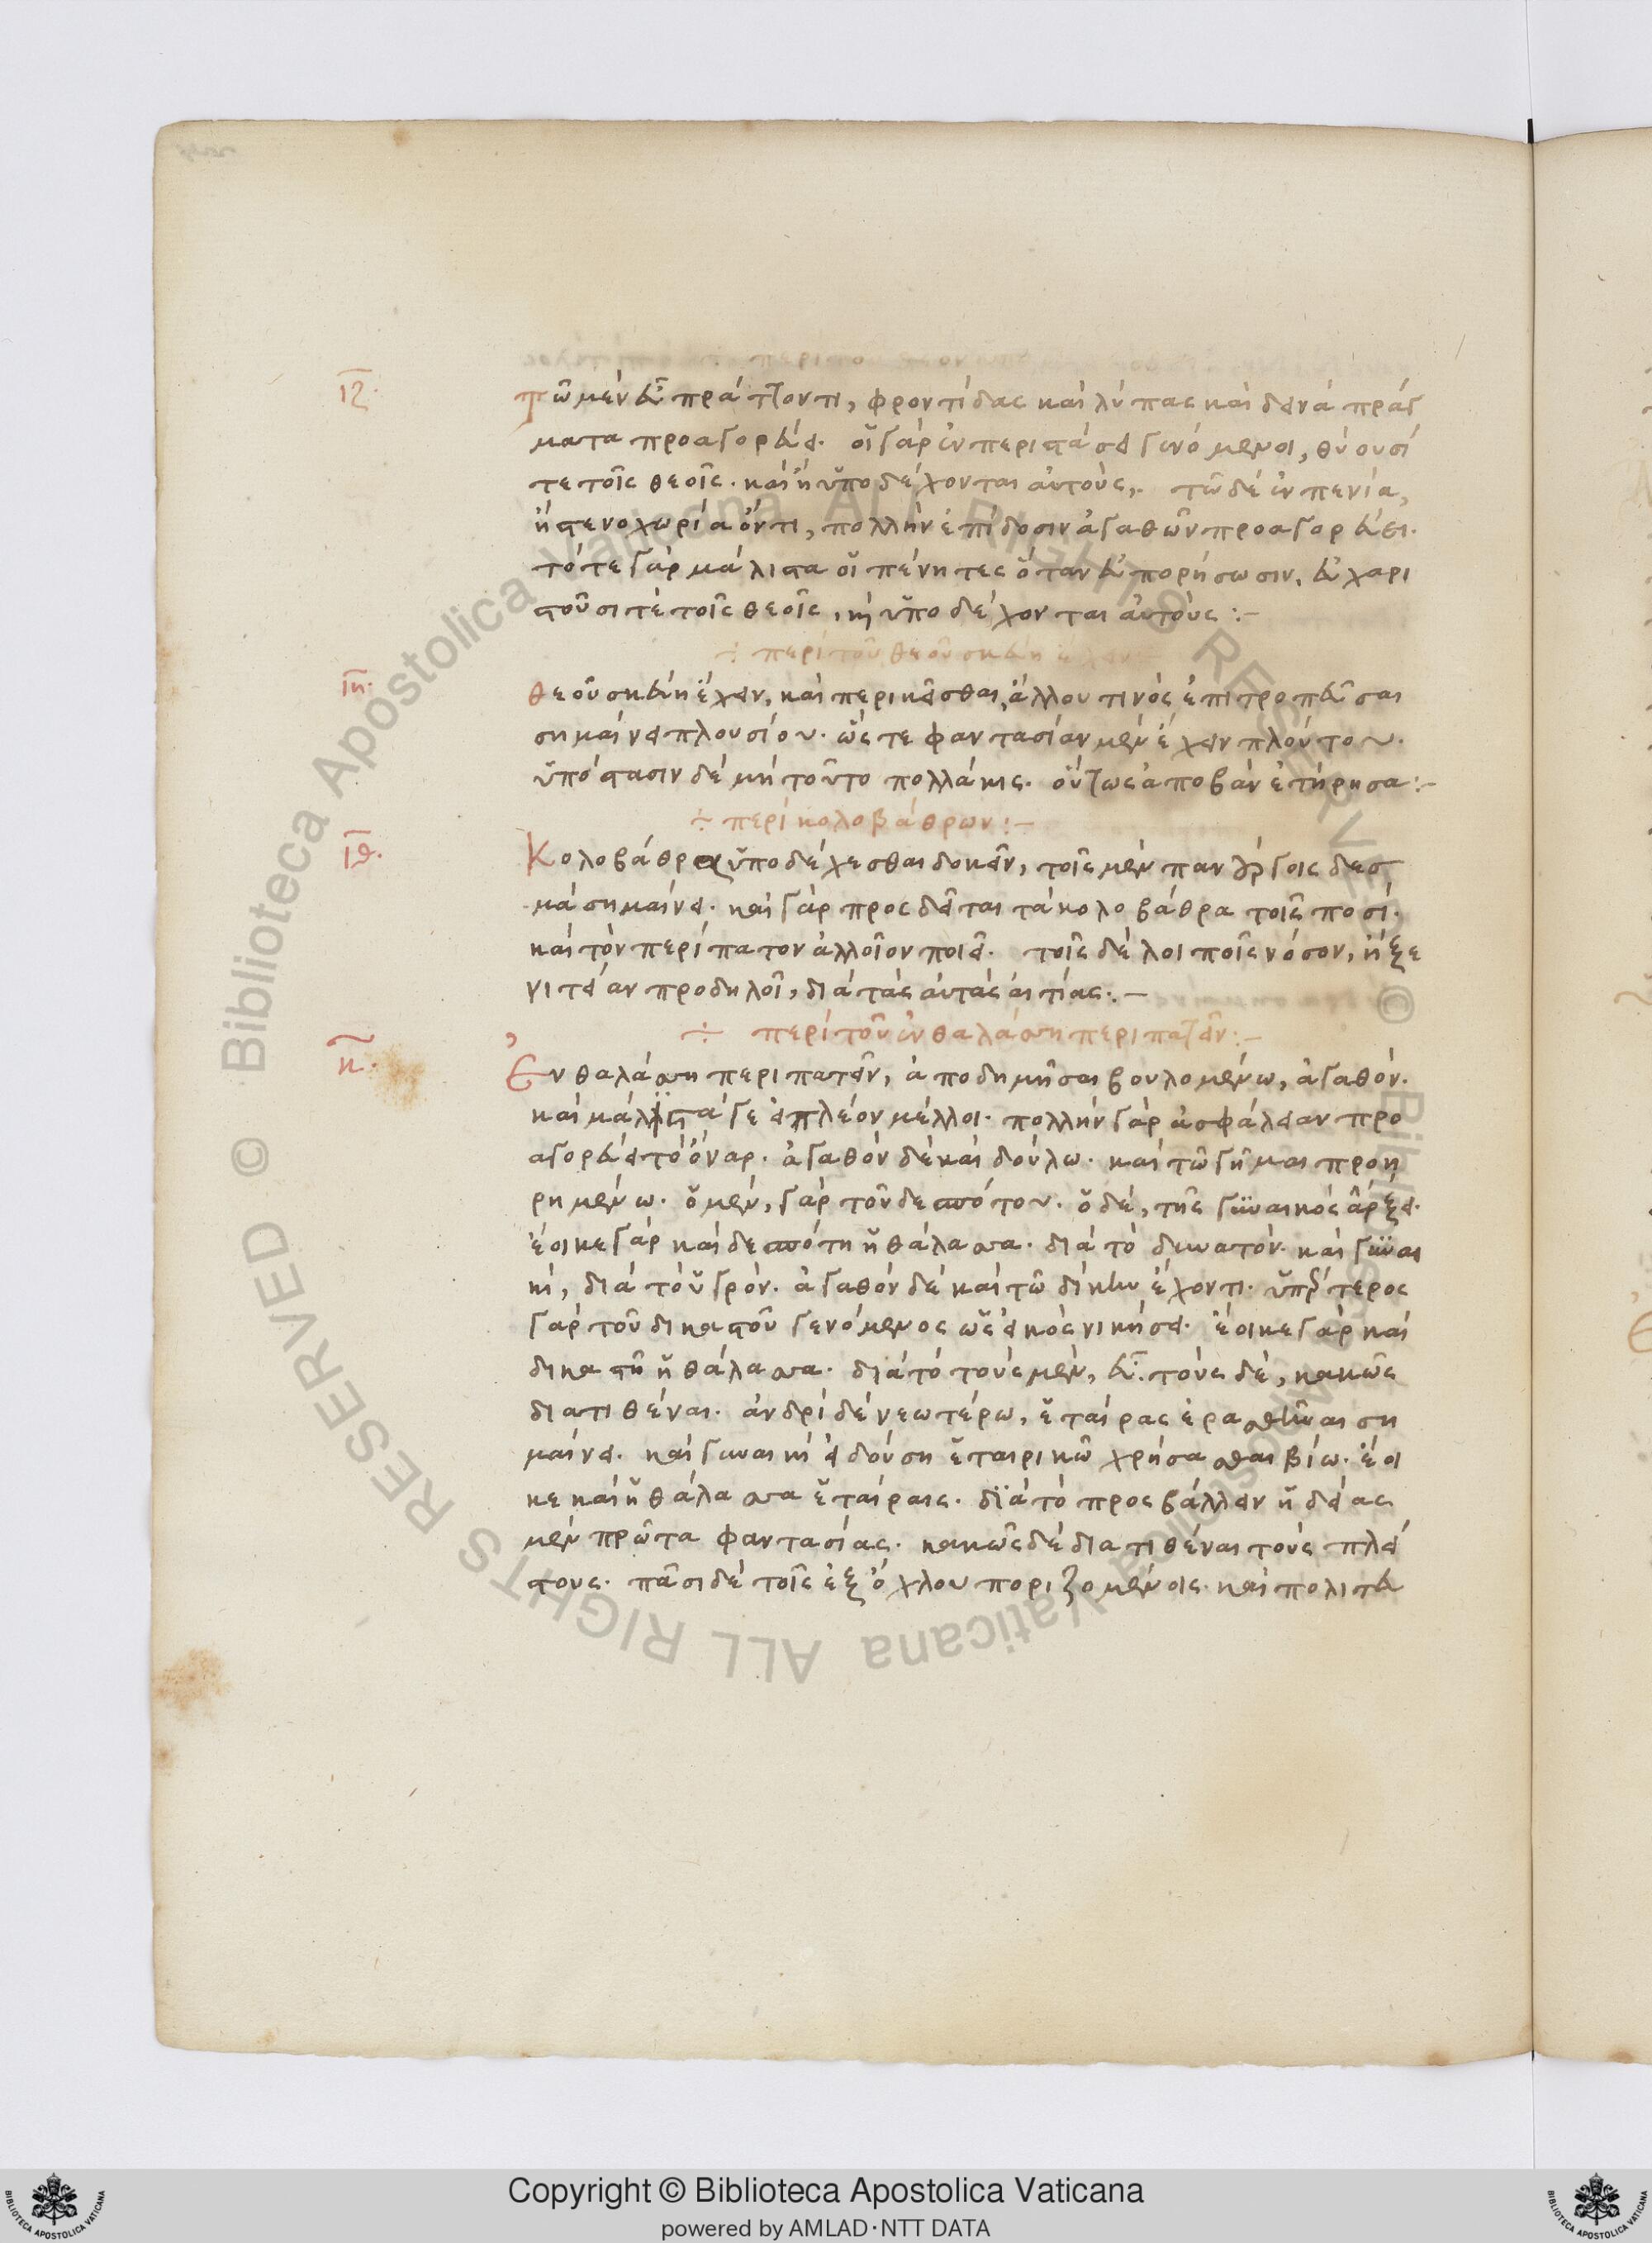 ιζ. Τῶ μὲν εὖ πράττοντι, φροντίδας καὶ λύπας καὶ δεινὰ πράγ
ματα προαγορεύει. οἱ γὰρ ἐν περιστάσει γινόμενοι, θύουσί
τε τοῖς θεοῖς. καὶ ὑποδέχονται αὐτούς. τῶ δὲ ἐν πενία,
ἢ στενοχωρία ὄντι, πολλὴν ἐπίδοσιν ἀγαθῶν προαγορεύει.
τότε γὰρ μάλιστα οἱ πένητες ὅταν εὐπορήσωσιν, εὐχαρι
στοῦσι τὲ τοῖς θεοῖς, καὶ ὑποδέχονται αὐτούς :-
÷ περὶ τοῦ θεοῦ σκεύη ἔχειν
ιη. Θεοῦ σκεύη ἔχειν, καὶ περικεῖσθαι, ἄλλου τινὸς ἐπιτροπεῦσαι
σημαίνει πλουσίου. ὥστε φαντασίαν μὲν ἔχειν πλούτου.
ὑπόστασιν δὲ μὴ τοῦτο πολλάκις. οὕτως ἀποβὰν ἐτήρησα :-
÷ περὶ κολοβάθρων :-
ιθ. Κολοβάθρα ὑποδέχεσθαι δοκεῖν, τοῖς μὲν πανούργοις δεσ
μὰ σημαίνει. καὶ γὰρ προσδεῖται τὰ κολοβάθρα τοῖς ποσί.
καὶ τὸν περίπατον ἀλλοῖον ποιεῖ. τοῖς δὲ λοιποῖς νόσον, ἢ ξε
νιτείαν προδηλοῖ, διὰ τὰς αὐτὰς αἰτίας :-
÷ περὶ τοῦ ἐν θαλάσση περιπατεῖν :-
κ. Ἐν θαλάσση περιπατεῖν, ἀποδημῆσαι βουλομένω, ἀγαθόν.
καὶ μάλιστά γε εἰ πλέον μέλλοι. πολλὴν γὰρ ἀσφάλειαν προ
αγορεύει τὸ ὄναρ. ἀγαθὸν δὲ καὶ δούλω. καὶ τῶ γῆμαι προη
ρημένω. ὁ μὲν, γὰρ τοῦ δεσπότου. ὁ δὲ, τῆς γυναικὸς ἄρξει.
ἔοικε γὰρ καὶ δεσπότη ἡ θάλασσα. διὰ τὸ δυνατόν. καὶ γυναι
κὶ, διὰ τὸ ὑγρόν. ἀγαθὸν δὲ καὶ τῶ δίκην ἔχοντι. ὑπέρτερος
γὰρ τοῦ δικαστοῦ γενόμενος ὡς εἰκὸς νικήσει. ἔοικε γὰρ καὶ
δικαστῆ ἡ θάλασσα. διὰ τὸ τοὺς μὲν, εὖ. τοὺς δὲ, κακῶς
διατιθέναι. ἀνδρὶ δὲ νεωτέρω, ἑταίρας ἐρασθῆναι ση
μαίνει. καὶ γυναικὶ εἰδούση ἑταιρικῶ χρήσασθαι βίω. ἔοι
κε καὶ ἡ θάλασσα ἑταίραις. διὰ τὸ προσβάλλειν ἡδείας
μὲν πρῶτα φαντασίας. κακῶς δὲ διατιθέναι τοὺς πλεί
στους. πᾶσι δὲ τοῖς ἐξ ὄχλου ποριζομένοις. καὶ πολιτευ